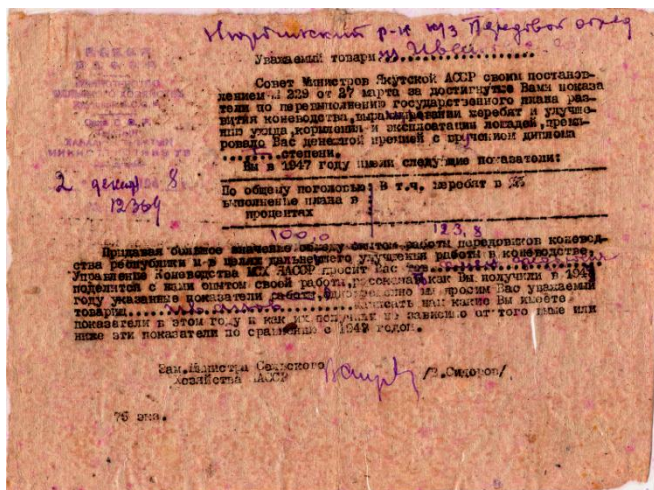 Нюрбинский р-н к/з Передовой отряд
Уважаемый товарищ
Совет Министров Якутской АССР своим постанов-
лением № 229 от 27 марта за достигнутые Вами показа
тели по перевыполнению государственного плана раз-
вития коневодства, выращивании жеребят и улучше-
нию ухода, кормления и эксплоатации лошадей, преми-
ровало Вас денежной премией с вручением диплома
степени.
Вы в 1947 году имели следующие показатели:
По общему поголовью: В т.ч. жеребят в %%
выполнение плана в
процентах
100,0 123,8
2 декабр 8
12369
Придавая большое значение обмену опытом работы передовиков коневод-
ства республики и в целях дальнейшего улучшения работы в коневодстве,
Управление Коневодства МСХ ЯАССР просит Вас тов.
поделится с нами опытом своей работы, рассказав, как Вы получили в 1947
году указанные показатели работы, одновременно мы просим Вас уважаемый
товарищ написать нам какие Вы имеете
показатели в этом году и как их получили не зависимо от того выше или
ниже эти показатели по сравнению с 1947 годом.
Зам.Министра Сельского
Хозяйства ЯАССР /В.Сидоров/
75 экз.